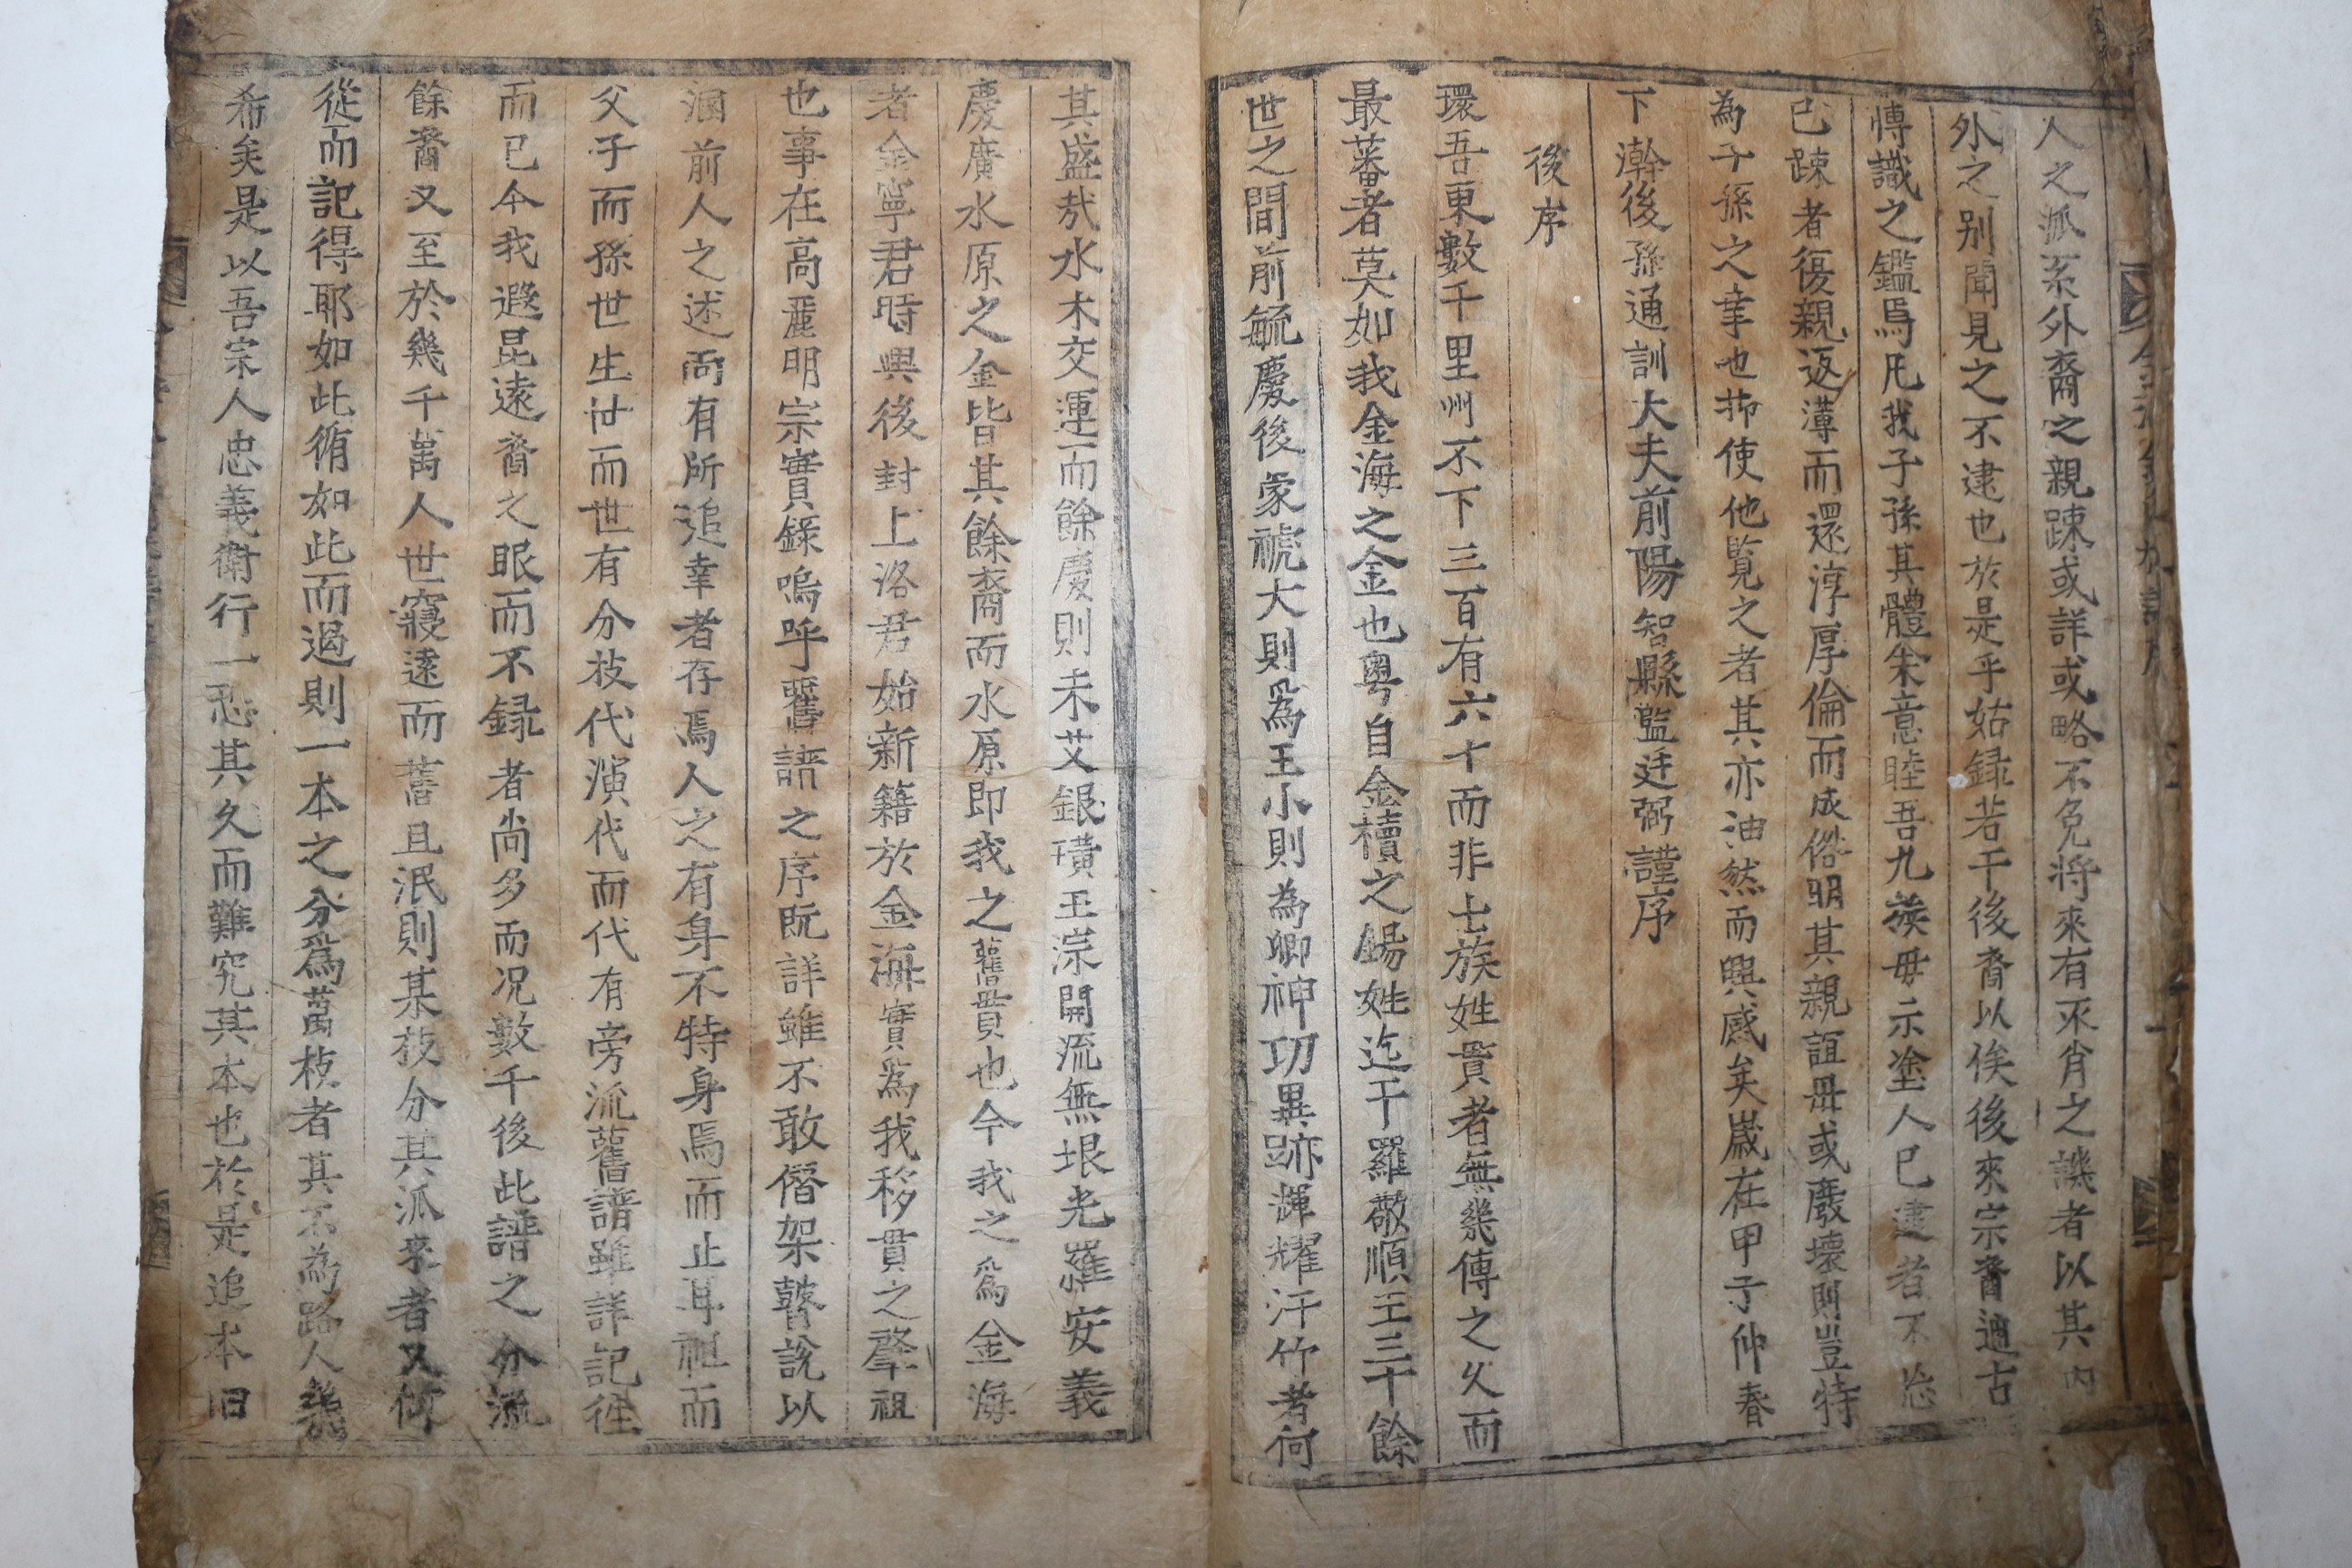 人之派系外裔之親踈或詳或略不免將來有不肖之譏者以其內
外之別聞見之不逮也於是乎姑録若干後裔以俟後來宗裔迪古
愽識之鑑焉凡我子孫其體朱意睦吾九族毋示塗人已逮者不忘
已踈者復親返薄而還淳厚倫而成俗明其親誼毋或廢壞則豈特
為子孫之幸也抑使他覧之者其亦油然而興感矣歲在甲子仲春
下澣後孫通訓大夫前陽智縣監廷弼謹序
後序
環吾東數千里州不下三百有六十而非士族姓貫者無幾傳之久而
最蕃者莫如我金海之金也粤自金櫝之錫姓迄于羅敬順王三十餘
世之間前毓慶後裒禠大則爲王小則為卿神功異跡輝耀汗竹者何
其盛㢤水木交運而餘慶則未艾銀璜玉淙開流無垠光羅安義
慶廣水原之金皆其餘裔而水原即我之舊貫也今我之爲金海
者金寧君時興後封上洛君始新籍於金海實爲我移貫之肇祖
也事在高麗明宗實錄嗚呼舊譜之序旣詳雖不敢僭架贅說以
溷前人之述而有所追幸者存焉人之有身不特身焉而止耳祖而
父子而孫世生世而世有分枝代演代而代有旁流舊譜雖詳記徃
而已今我遐昆遠裔之眼而不録者尚多而况數千後此譜之分流
餘裔又至於幾千萬人世寢遠而舊且泯則某枝分其派來者又何
從而記得耶如此循如此而過則一本之分爲萬枝者其不為路人幾
希矣是以吾宗人忠義衛行一恐其久而難究其本也於是追本旧